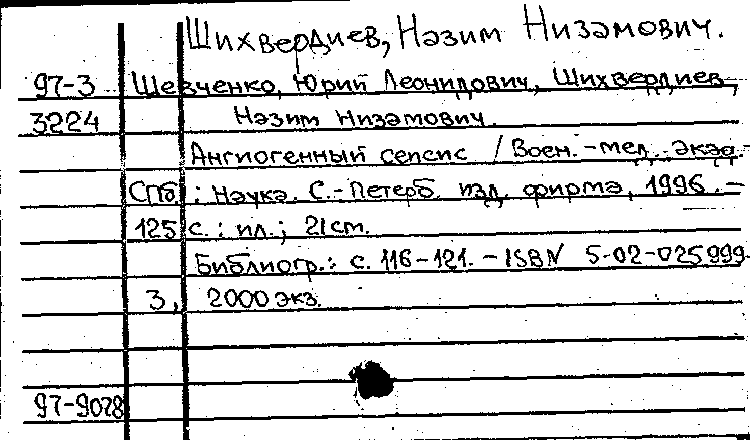 Шихвердиев, Назим Низамович.
97-3 Шевченко, Юрий Леонидович, Шихвердиев,
3224 Назим Низамович.
Ангиогенный сепсис / Воен.-мед. акад.-
СПб.: Наука. С.-Петерб. изд. фирма, 1996.-
125 с.: ил.; 21 см.
Библиогр.: с. 116-121. - ISBN 5-02-025999-
3, 2000 экз.
97-9078